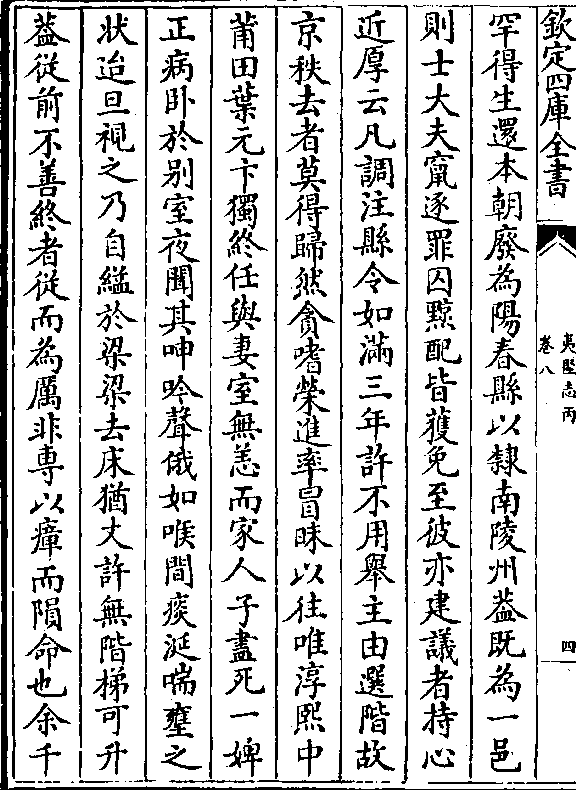 欽定四庫全書
夷堅志丙
卷八
四
罕得生還本朝廢為陽春縣以隸南陵州葢既為一邑
則士大夫竄逐罪囚黥配皆獲免至彼亦建議者持心
近厚云凡調注縣令如滿三年許不用舉主由選階故
京秩去者莫得歸然貪嗜榮進率冒昧以往唯淳熙中
莆田葉元卞獨終任與妻室無恙而家人子盡死一婢
正病卧於别室夜聞其呻吟聲俄如喉間痰涎喘壅之
狀迨旦視之乃自縊於梁梁去床猶丈許無階梯可升
葢從前不善終者從而為厲非専以瘴而隕命也余千